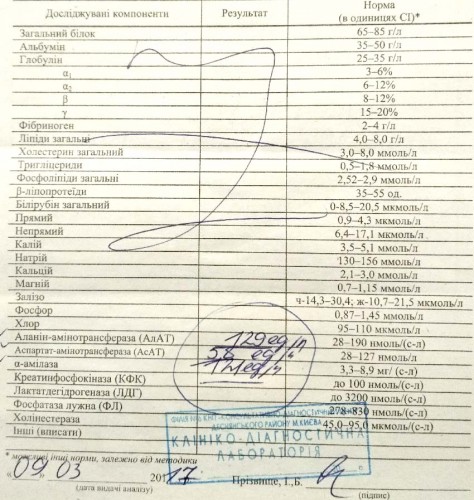 Досліджувані компоненти Результат Норма (в одиницях СІ)*
Загальний білок 65–85 г/л
Альбумін 35–50 г/л
Глобулін 25–35 г/л
α₁ 3–6%
α₂ 6–12%
β 8–12%
γ 15–20%
Фібриноген 2–4 г/л
Ліпіди загальні 4,0–8,0 г/л
Холестерин загальний 3,0–8,0 ммоль/л
Тригліцериди 0,5–1,8 ммоль/л
Фосфоліпіди загальні 2,52–2,9 ммоль/л
β-ліпопротеїди 35–55 од.
Білірубін загальний 0-8,5–20,5 мкмоль/л
Прямий 0,9–4,3 мкмоль/л
Непрямий 6,4–17,1 мкмоль/л
Калій 3,5–5,1 ммоль/л
Натрій 130–156 ммоль/л
Кальцій 2,1–3,0 ммоль/л
Магній 0,7–1,15 ммоль/л
Залізо ч-14,3–30,4; ж-10,7–21,5 мкмоль/л
Фосфор 0,87–1,45 ммоль/л
Хлор 95–110 ммоль/л
Аланін-амінотрансфераза (АлАТ) 129 ед/л 28–190 нмоль/(с-л)
Аспартат-амінотрансфераза (АсАТ) 58 ед/л 28–127 нмоль/л
α-амілаза 3,3–8,9 мг/ (с-л)
Креатинфосфокіназа (КФК) до 100 нмоль/(с-л)
Лактатдегідрогеназа (ЛДГ) до 3200 нмоль/(с-л)
Фосфатаза лужна (ФЛ) 278–830 нмоль/(с-л)
Холінестераза 45,0–95,0 мкмоль/(с-л)
Інші (вписати)
ДЕСНЯНСЬКОГО РАЙОНУ М.КИЄВА
КЛІНІКО-ДІАГНОСТИЧНА
ЛАБОРАТОРІЯ
* можливі інші норми, залежно від методики
«09» 03 2017 Прізвище, І., Б.
(дата видачі аналізу) (підпис)